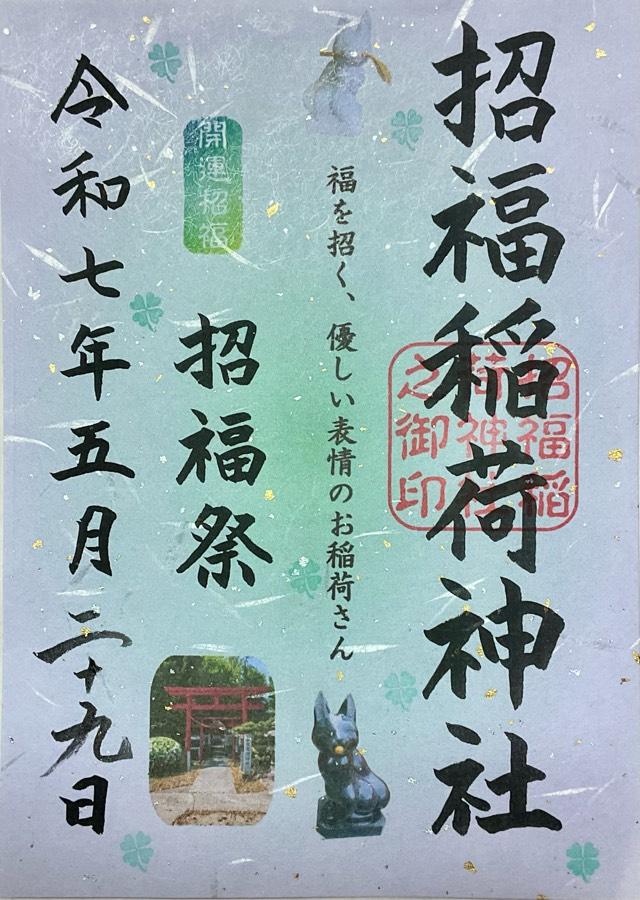 招福稲荷神社
招福稲
荷神社
之御印
福を招く、優しい表情のお稲荷さん
開運招福
招福祭
令和七年五月二十九日